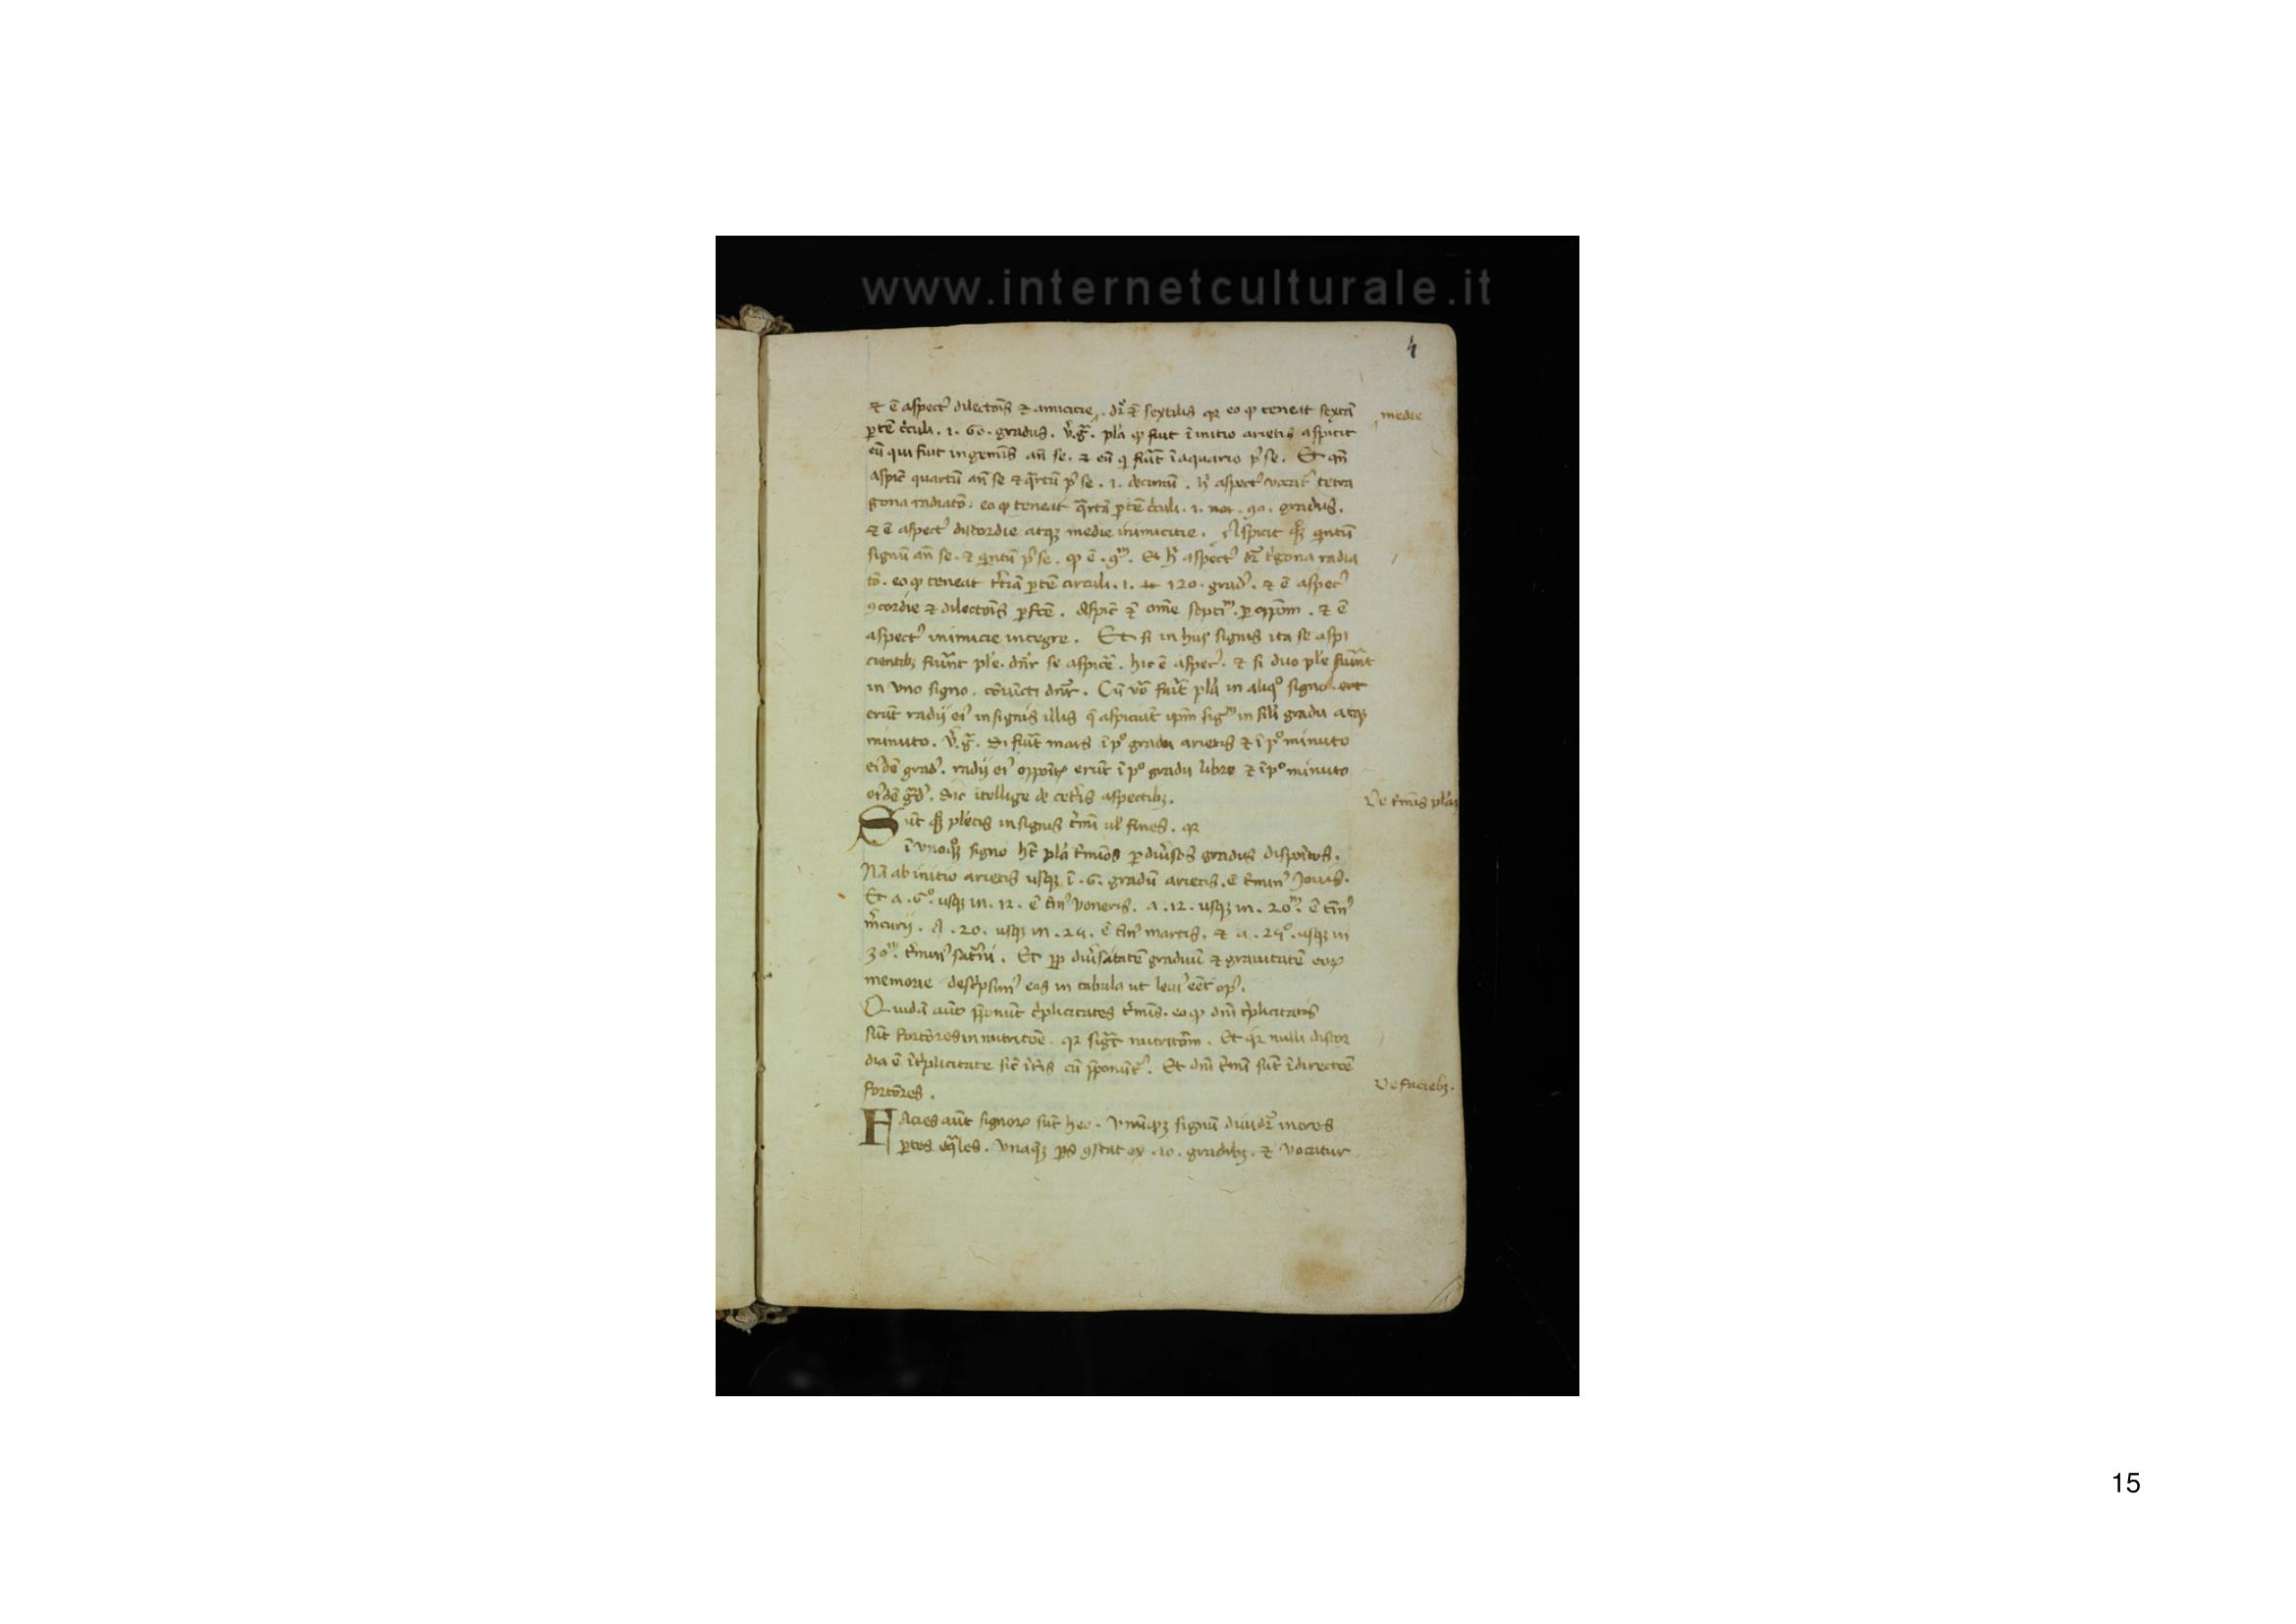 www.internetculturale.it
4
⁊ ē aspectꝰ dilectōis ⁊ amicicie. dr̄ ē sextilis qꝛ eo ꝙ teneat sextā
medie
ꝑtē cͥculi. i. 60. gradus. v̄.gͣ. pla ꝙ fuit ī initio arietis aspicit
eū qui fuit in gemīs an̄ se. ⁊ eū qͥ fūit ī aquario pꝰ se. Et qn̄
aspic̄ quartū an̄ se ⁊ qͣrtū pꝰ se. i. decimū. hͥ aspectꝰ vocatꝰ tetra
gona radiatō. eo ꝙ teneat qͣrtā ꝑtē cͥculi. i. 90. gradus.
⁊ ē aspectꝰ discordie atqꝫ medie inimicitie. Aspicit qͦꝫ qͥntū
signū an̄ se. ⁊ qͥntū pꝰ se. ꝙ ē. 9ᵐ. Et hͥ aspectꝰ dr̄ tͥgona radia
tō. eo ꝙ teneat tͥciā ꝑtē circuli. i. 120. gradꝰ. ⁊ ē aspecꝰ
ꝯcordie ⁊ dilectōis ꝑfcē. aspic̄ ⁊ om̄e septiᵐ. ꝑ oppōm. ⁊ ē
aspectꝰ inimicie integre. Et si in huiꝰ signis ita se aspi
cientibꝫ fiūnt ple. dn̄r se aspicē. hic ē aspecꝰ. ⁊ si duo ple fūint
in vno signo. cōiūcti dn̄r. Cū vō fuīt pla in aliqͦ signo. erit
erūt radij eiꝰ in signis illis q̄ aspiciūt ip̄m sigᵐ in sili gradu atqꝫ
minuto. v̄.gͣ. Si fūit mars ī pͦ gradu arietis ⁊ ī pͦ minuto
eiꝰdē gradꝰ. radij eiꝰ oppōitꝭ erūt ī pͦ gradu libre ⁊ ī pͦ minuto
eiꝰdē gͣdꝰ. Sic ītellige de cetͥis aspectibꝫ.
De tͥmīs plaꝝ
Sūt qͦꝫ pletis in signis tͥmī ul fines. qꝛ
ī vnoqͦꝫ signo hꝫ pla tͥmīos ꝑ diuͥsos gradus dispoītos.
Nā ab initio arietis usqꝫ ī. 6. gradū arietis. ē tͥminꝰ Jouis.
Et a. 6ͦ. usqꝫ in. 12. ē tīnꝰ veneris. a. 12. usqꝫ in. 20ᵐ. ē tīnꝰ
mͥcurij. A. 20. usqꝫ in. 25. ē tīnꝰ martis. ⁊ a. 25ͦ. usqꝫ in
30ᵐ. tͥminꝰ satͥni. Et ꝓp diuͥsitatē graduū ⁊ grauitatē eoꝝ
memorie descͥpsimꝰ eos in tabula ut leuiꝰ eēt opꝰ.
Quidā aūt p̄ponūt tͥplicitates tͥmīs. eo ꝙ dn̄i tͥplicitatis
sūt fortōres in nutritōe. qꝛ sigͣt nutritōm. Et qꝛ nulli discor
dia ē ī tͥplicitate sic̄ ī tͥis cū p̄ponūtꝰ. Et dn̄i tͥmī sūt ī directōe
fortōres.
De faciebꝫ.
Facies aūt signoꝝ sūt hec. Vnūqͦꝫ signū diuidr̄ in tres
ꝑtes eqͣles. vnaqͣꝫ ps ꝯstat ex. 10. gradibꝫ. ⁊ vocatur
15